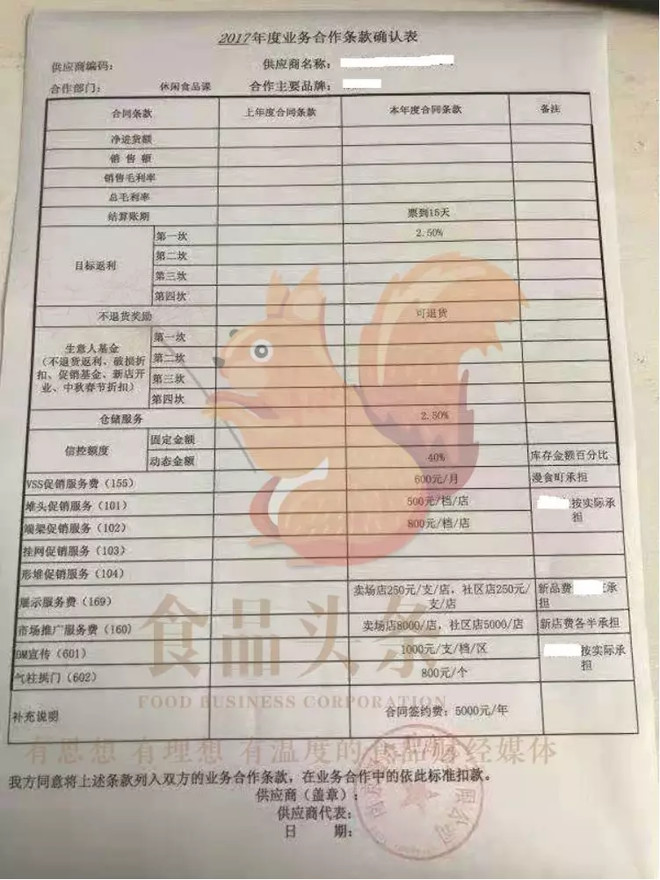 2017年度业务合作条款确认表
供应商编码: 供应商名称:
合作部门: 休闲食品课 合作主要品牌:
合同条款 上年度合同条款 本年度合同条款 备注
净进货额
销售额
销售毛利率
总毛利率
结算账期 票到15天
目标返利 第一坎 2.50%
第二坎
第三坎
第四坎
不退货奖励 可退货
生意人基金
(不退货返利、破损折
扣、促销基金、新店开
业、中秋春节折扣) 第一坎
第二坎
第三坎
第四坎
仓储服务 2.50%
信控额度 固定金额
动态金额 40% 库存金额百分比
VSS促销服务费(155) 600元/月 漫食町承担
堆头促销服务(101) 500元/档/店 按实际承
担
端架促销服务(102) 800元/档/店
挂网促销服务(103)
形堆促销服务(104)
展示服务费(169) 卖场店250元/支/店,社区店250元/
支/店 新品费 承
担
市场推广服务费(160) 卖场店8000/店,社区店5000/店 新店费各半承担
DM宣传(601) 1000元/支/档/区 按实际承
担
气柱拱门(602) 800元/个
补充说明 合同签约费:5000元/年
食品头条
FOOD BUSINESS CORPORATION
有思想 有理想 有温度的食品财经媒体
我方同意将上述条款列入双方的业务合作条款,在业务合作中的依此标准扣款。
供应商(盖章):
供应商代表:
日 期:
限公司